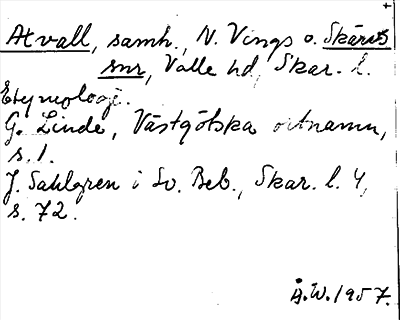 Axvall, samh., N. Vings o. Skärvs
snr, Valle hd, Skar. l.
Etymologi.
G. Linde, Västgötska ortnamn,
s. 1.
J. Sahlgren i Sv. Beb., Skar. l. 4,
s. 72.
Å.W. 1957.